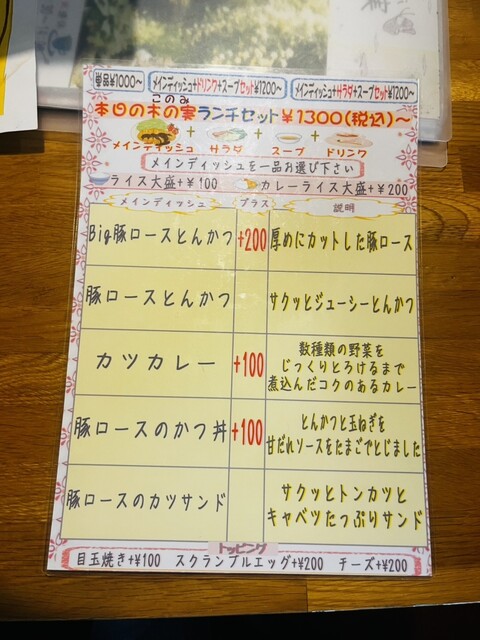 単品¥1000〜 メインディッシュ+ドリンク+スープセット¥1200〜 メインディッシュ+サラダ+スープセット¥1200〜
このみ
本日の木の実ランチセット¥1300(税込)〜
+ + +
メインディッシュ サラダ スープ ドリンク
メインディッシュを一品お選び下さい
ライス大盛+¥100 カレーライス大盛+¥200
メインディッシュ プラス 説明
Big豚ロースとんかつ +200 厚めにカットした豚ロース
豚ロースとんかつ サクッとジューシーとんかつ
カツカレー +100 数種類の野菜を
じっくりとろけるまで
煮込んだコクのあるカレー
豚ロースのかつ丼 +100 とんかつと玉ねぎを
甘だれソースをたまごでとじました
豚ロースのカツサンド サクッとトンカツと
キャベツたっぷりサンド
トッピング
目玉焼き+¥100 スクランブルエッグ+¥200 チーズ+¥200